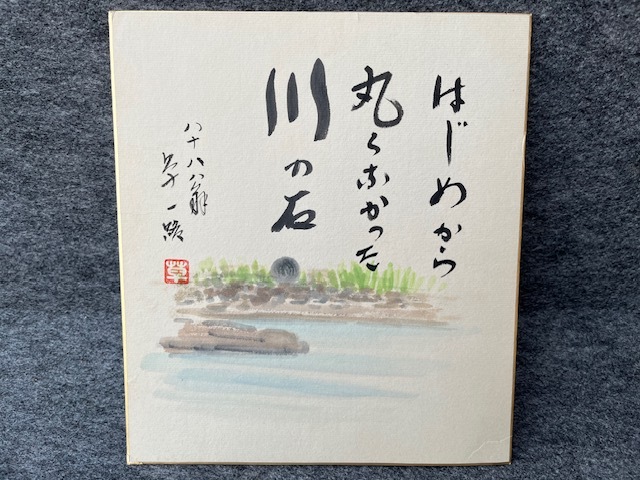 はじめから
丸くなかった
川の石
八十八翁
草一路
草